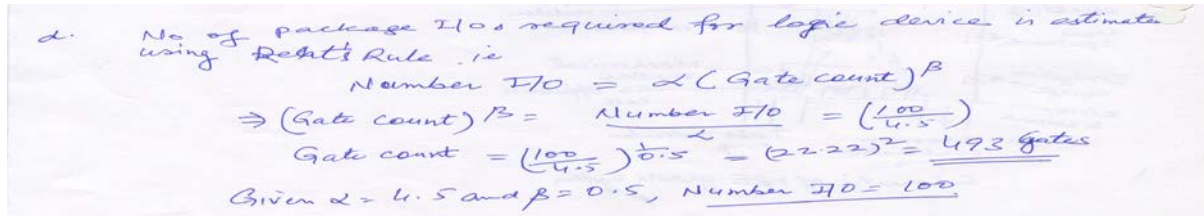 d. No of package I/Os required for logic device is estimated
using Rent's Rule ie
Number I/O = α (Gate count)^β
⇒ (Gate count)^β = Number I/O / α = (100/4.5)
Gate count = (100/4.5)^(1/0.5) = (22.22)^2 = 493 Gates
Given α = 4.5 and β = 0.5, Number I/O = 100